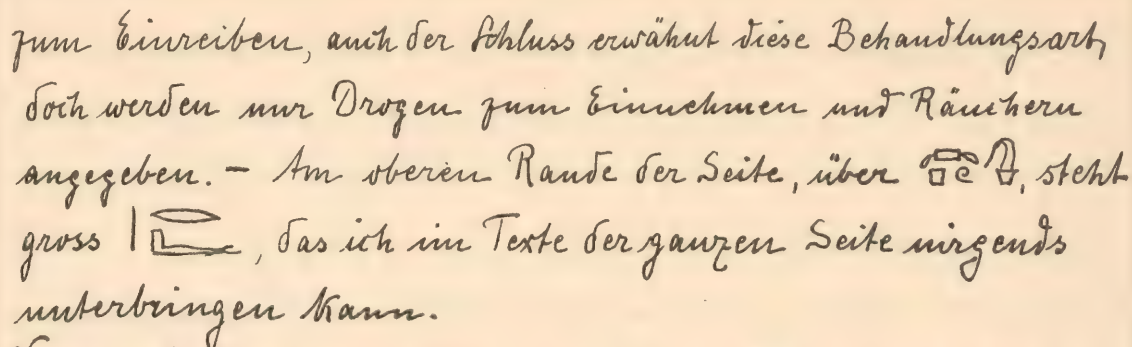 zum Einreiben, auch der Schluss erwähnt diese Behandlungsart,
doch werden nur Drogen zum Einnehmen und Räuchern
angegeben. – Am oberen Rande der Seite, über , steht
gross , das ich im Texte der ganzen Seite nirgends
unterbringen kann.